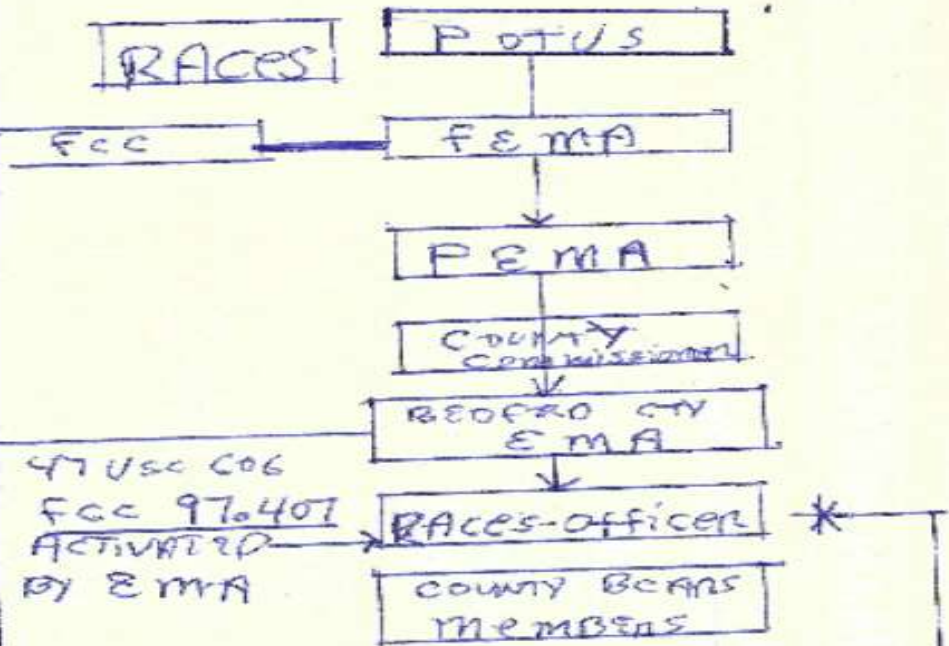 RACES
POTUS
FCC
FEMA
PEMA
COUNTY
Commissioner
BEDFRD CTY
EMA
47 USC 606
FCC 97.407
ACTIVATED
BY EMA
RACES-OFFICER
COUNTY BCARS
MEMBERS